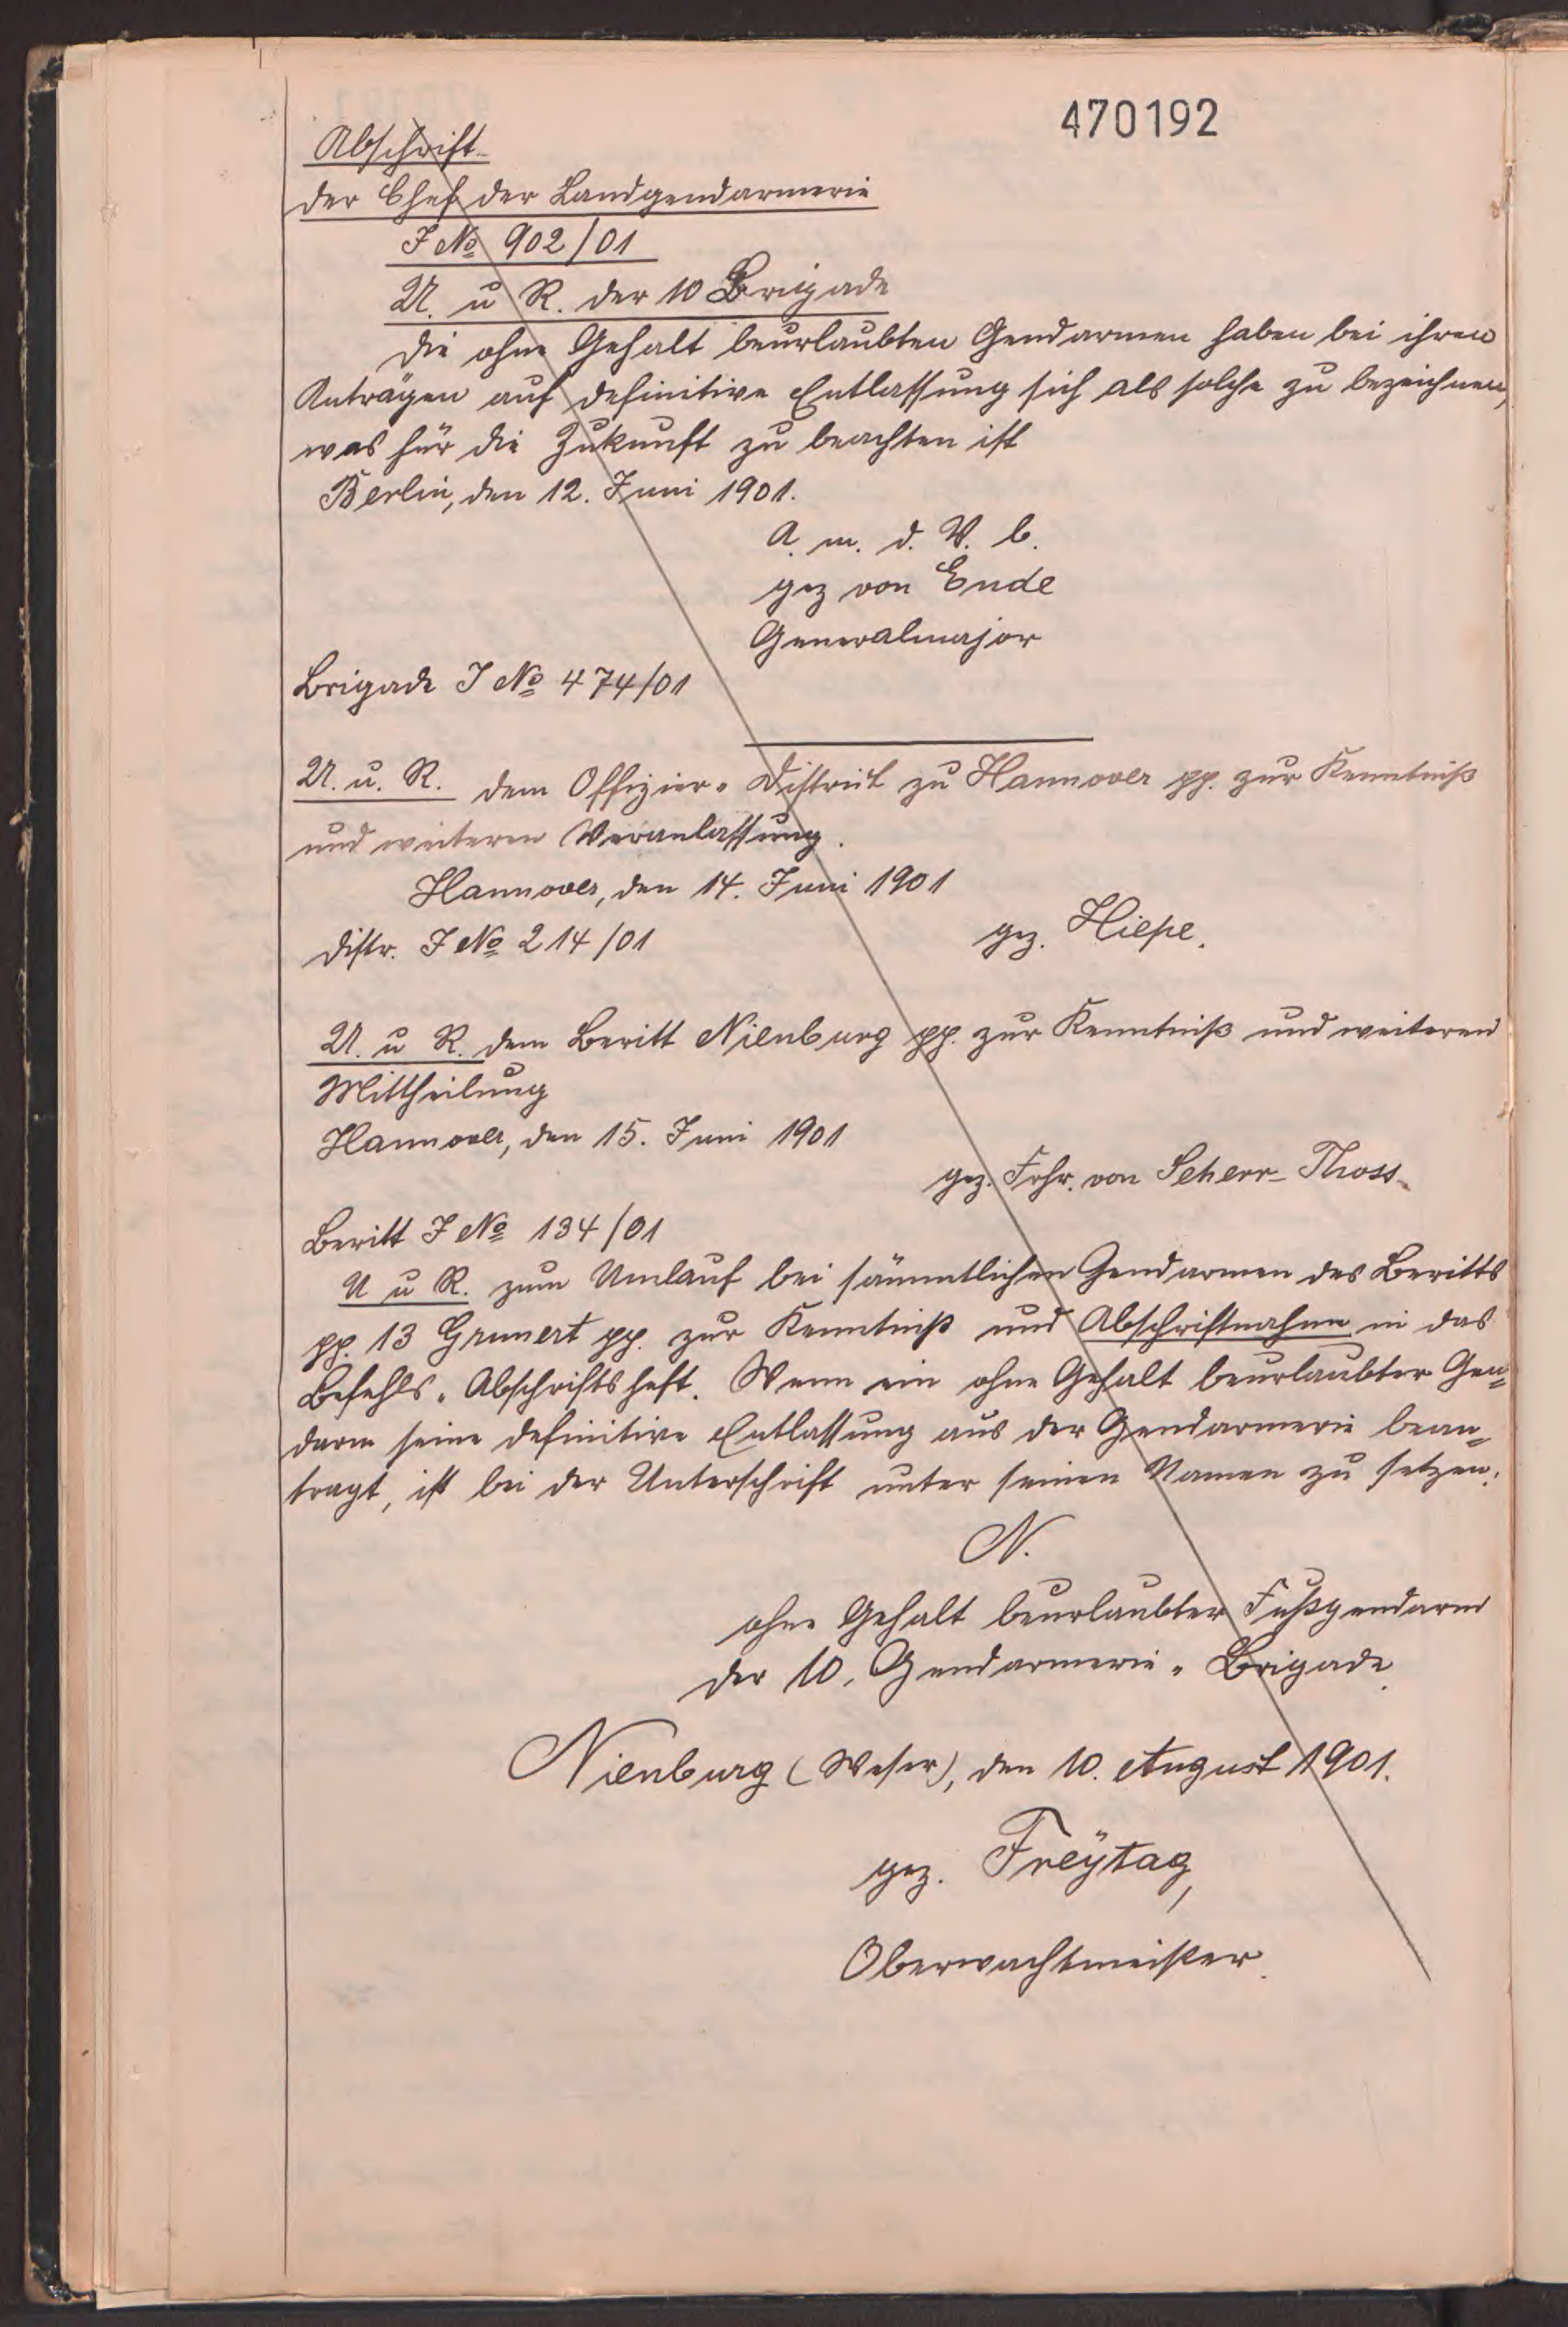 470192
Abschrift
Der Chef der Landgendarmerie
J № 902/01
U. u R. der 10 Brigade
Die ohne Gehalt beurlaubten Gendarmen haben bei ihren
Anträgen auf definitive Entlassung sich als solche zu bezeichnen,
was für die Zukunft zu beachten ist
Berlin, den 12. Juni 1901.
A. m. d. V. b.
gez von Ende
Generalmajor
Brigade J № 474/01
U. u. R. dem Offizier-Distrikt zu Hannover pp. zur Kenntniß
und weiteren Veranlassung.
Hannover, den 14. Juni 1901
gez. Hiepe.
Distr. J № 214/01
U. u R. dem Beritt Nienburg pp. zur Kenntniß und weiteren
Mittheilung
Hannover, den 15. Juni 1901
gez. Frhr. von Scherr-Thoss
Beritt J № 134/01
U u R. zum Umlauf bei sämmtlichen Gendarmen des Beritts
pp. 13 Grunert pp. zur Kenntniß und Abschriftnahme in das
Befehls-Abschriftsheft. Wenn ein ohne Gehalt beurlaubter Gen=
darm seine definitive Entlassung aus der Gendarmerie bean=
tragt, ist bei der Unterschrift unter seinen Namen zu setzen:
N.
ohne Gehalt beurlaubter Fußgendarm
der 10. Gendarmerie-Brigade.
Nienburg (Weser), den 10. August 1901.
gez. Freÿtag,
Oberwachtmeister.